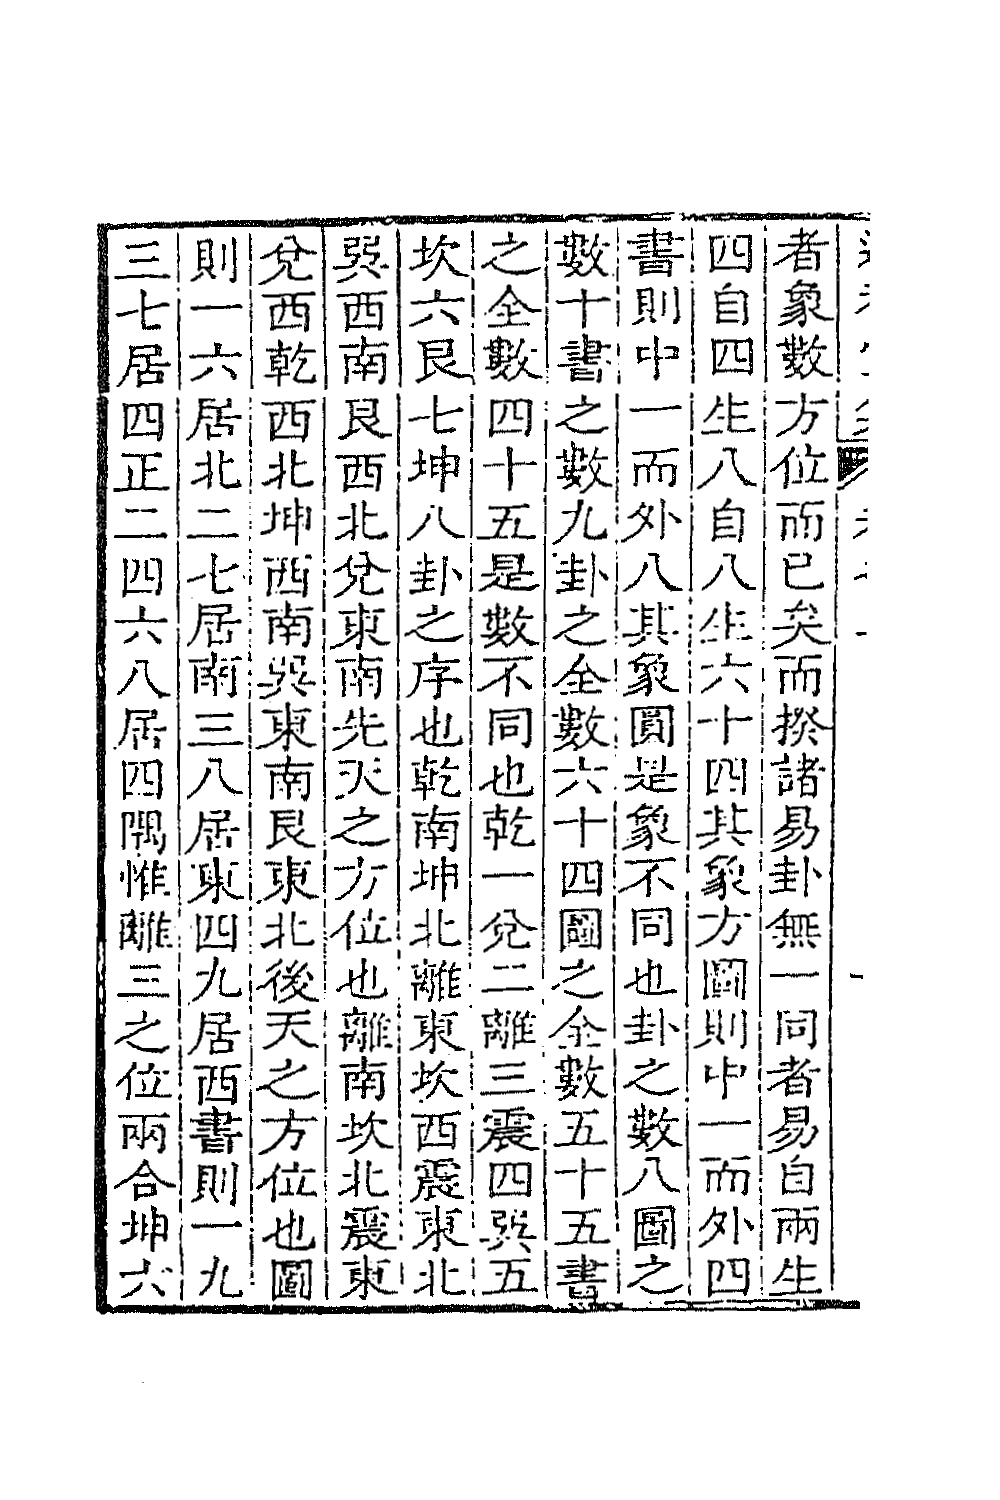 者象數方位而已矣而揆諸易卦無一同者易自兩生
四自四生八自八生六十四其象方圖則中一而外四
書則中一而外八其象圓是象不同也卦之數八圖之
數十書之數九卦之全數六十四圖之全數五十五書
之全數四十五是數不同也乾一兌二離三震四巽五
坎六艮七坤八卦之序也乾南坤北離東坎西震東北
巽西南艮西北兌東南先天之方位也離南坎北震東
兌西乾西北坤西南巽東南艮東北後天之方位也圖
則一六居北二七居南三八居東四九居西書則一九
三七居四正二四六八居四隅惟離三之位兩合坤六